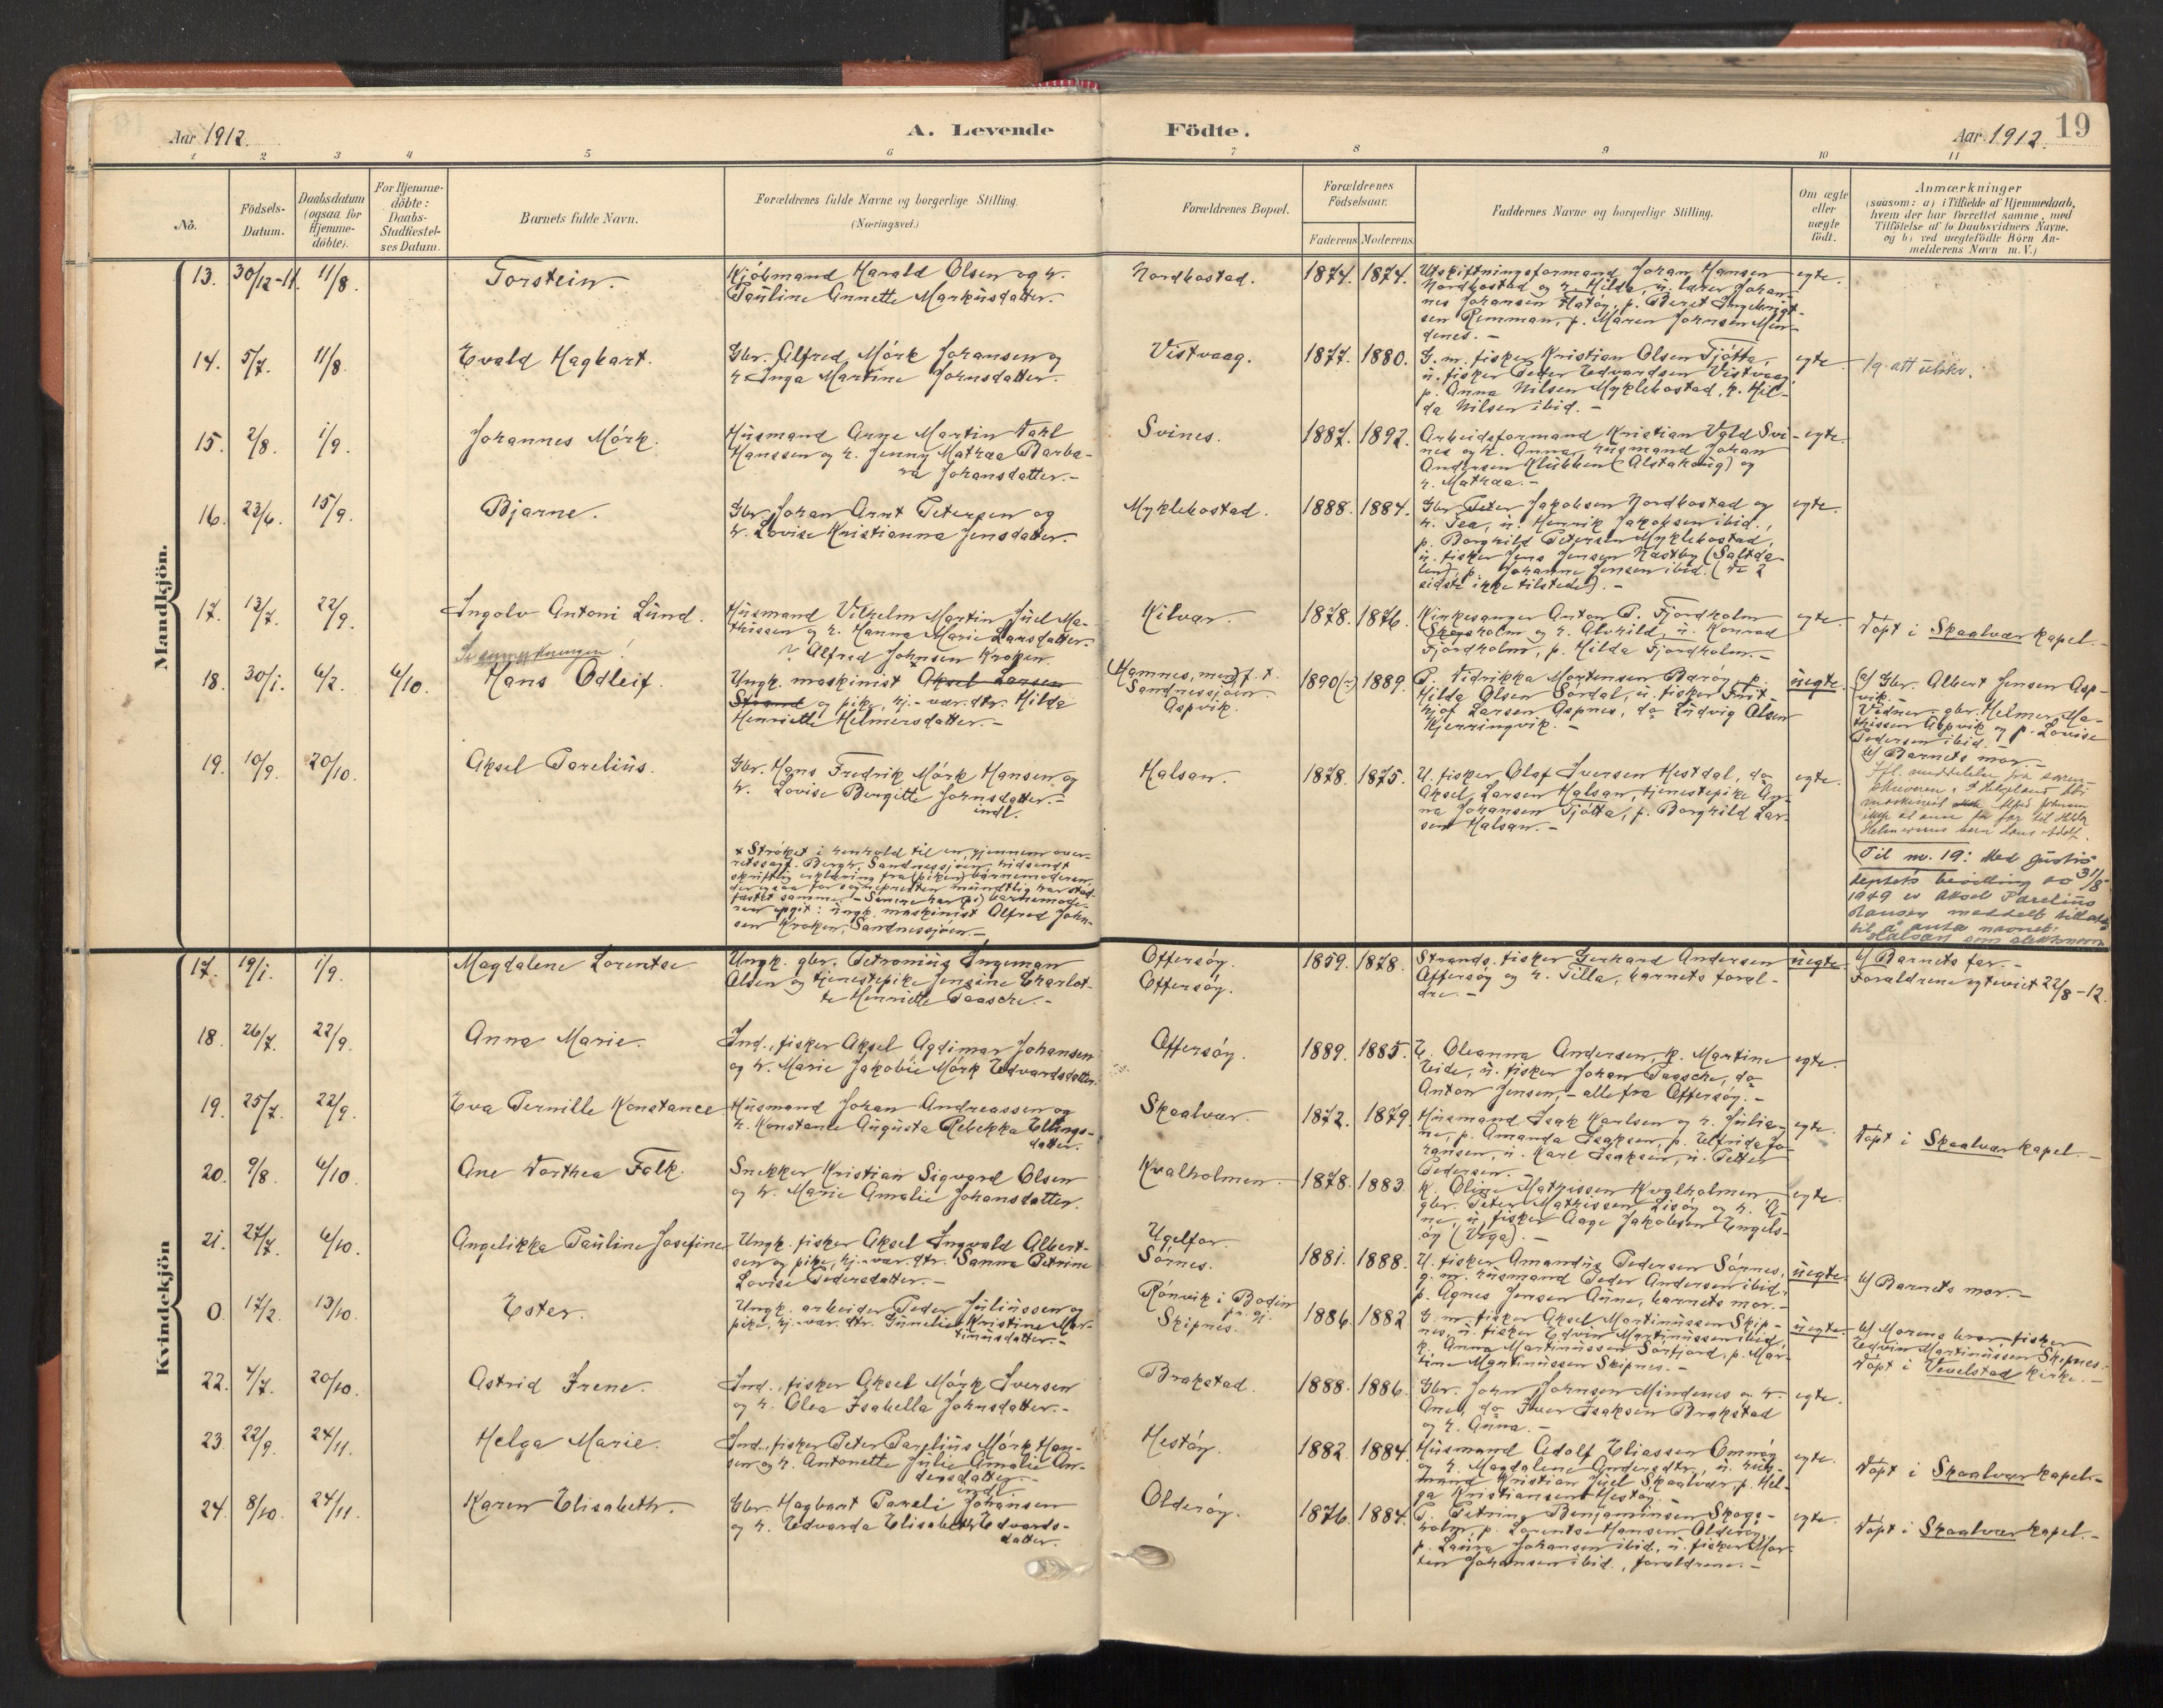 Aar 1912.
A. Levende
Födte.
Aar 1912.
19
1 2 3 4 5 6 7 8 9 10 11
No.
Födsels-
Datum.
Daabsdatum
(ogsaa for
Hjemme-
döbte).
For Hjemme-
döbte:
Daabs-
Stadfæstel-
ses Datum.
Barnets fulde Navn.
Forældrenes fulde Navne og borgerlige Stilling.
(Næringsvei.)
Forældrenes Bopæl.
Forældrenes
Födselsaar.
Faderens
Moderens
Faddernes Navne og borgerlige Stilling.
Om ægte
eller
uægte
födt.
Anmærkninger
(saasom: a) i Tilfælde af Hjemmedaab,
hvem der har forrettet samme, med
Tilföielse af to Daabsvidners Navne.
og b) ved uægtefödte Börn An-
melderens Navn m. V.)
Mandkjön.
13. 30/12-11. 11/8. Torstein.
Kjöbmand Harald Olsen og h.
Pauline Annette Markusdatter.
Nordbostad. 1874. 1874.
Utskiftningsformand Johan Hansen
Nordbostad og h. Hilda, u. lærer Johan-
nes Johansen Flatöy, p. Beret Ingebrigt-
sen Remman, p. Maren Johnsen Min-
denes. -
egte.
14. 5/7. 11/8. Evald Hagbart.
Gbr. Alfred Mörk Johansen og
h. Inga Martine Johnsdatter.
Vistvaag. 1877. 1880.
G. m. fisker Kristian Olsen Tjötta,
u. fisker Peder Edvardsen Vistvaag,
p. Anna Nilsen Myklebostad, p. Hil-
da Nilsen ibid. -
egte.
15. 2/8. 1/9. Johannes Mörk.
Husmand Arne Martin Dahl
Hanssen og h. Jenny Mathea Barba-
ra Johansdatter. -
Svines. 1887. 1892.
Arbeidsformand Kristian Vold Svi-
nes og h. Anna, husmand Johan
Andersen Klubben (Alstahaug) og
h. Mathea. -
egte.
16. 23/6. 15/9. Bjarne.
Gbr. Johan Arnt Petersen og
h. Lovise Kristianna Jensdatter.
Myklebostad. 1888. 1884.
Gbr. Peter Jakobsen Nordbostad og
h. Tea, u. Henrik Jakobsen ibid.,
p. Borghild Petersen Myklebostad,
u. fisker Jens Jensen Næstby (Saltda-
len), p. Johanne Jensen ibid. (de 2
sidste ikke tilstede). -
egte.
17. 13/7. 22/9. Ingolv Antoni Lund.
Husmand Vilhelm Martin Juel Ma-
thissen og h. Hanna Marie Larsdatter.
Kilvær. 1878. 1876.
Kirkesanger Anton P. Fjordholm
Skogsholm og h. Alvhild, u. Konrad
Fjordholm, p. Hilda Fjordholm. -
egte.
Döpt i Skaalvær kapel. -
Se anmerkningen!
18. 30/1. 4/2. 6/10. Hans Odleif.
Alfred Johnsen Kroken.
Ungk. maskinist Aksel Larsen
Strand og pike, hj.-vær. dtr. Hilda
Henriette Helmersdatter. -
Hamnes, men f. t.
Sandnessjöen.
Aspvik.
1890(?) 1889.
P. Fidrikka Mortensen Baröy, p.
Hilda Olsen Sördal, u. fisker Frit-
hjof Larsen Aspnes, do Ludvig Olsen
Kjerringvik. -
uegte.
a/ Gbr. Albert Jensen Asp-
vik.
Vidner: gbr. Helmer Ma-
thissen Aspvik og p. Lovise
Pedersen ibid. -
b/ Barnets mor. -
19. 10/9. 20/10. Aksel Parelius.
Gbr. Hans Fredrik Mörk Hansen og
h. Lovise Bergitte Johnsdatter. -
indl.
Halsan. 1878. 1875.
U. fisker Olaf Iversen Hestdal, do
Aksel Larsen Halsan, tjenestepike An-
na Johansen Tjötta, p. Borghild Lar-
sen Halsan. -
egte.
x Ströket i henhold til en gjennem over-
retssagf. Bergh, Sandnessjöen, hidsendt
skriftlig erklæring fra (piken) barnemoderen,
der ogsaa for sognepresten mundtlig har stad-
fæstet samme. - Senere har barnemode-
ren opgit: ungk. maskinist Alfred John-
sen Kroken, Sandnessjöen. -
Til nr. 19: Med justis
deptets bevilling av 31/8
1949 er Aksel Parelius
Hansen meddelt tillatelse
til å anta navnet:
Halsan som slektsnavn
Kvindekjön
17. 19/1. 1/9. Magdalene Lorentse
Ungk. gbr. Petronius Ingeman
Olsen og tjenestepike Jensine Charlot-
te Henriette Paasche. -
Offersöy.
Offersöy.
1859. 1878.
Strands. fisker Gerhard Andersen
Offersöy og h. Tilla, barnets foræl-
dre. -
uegte.
b/ Barnets far. -
Forældrene egteviet 22/8-12.
18. 26/7. 22/9. Anna Marie.
Ind., fisker Aksel Agdimar Johansen
og h. Marie Jakobie Mörk Edvardsdatter.
Offersöy. 1889. 1885.
E. Oleanna Andersen, k. Martine
Eide, u. fisker Johan Paasche, do
Anton Jensen, - alle fra Offersöy. -
egte.
19. 25/7. 22/9. Eva Pernille Konstance
Husmand Johan Andreassen og
h. Konstance Augusta Rebekka Ellings-
datter.
Skaalvær. 1872. 1879.
Husmand Isak Karlsen og h. Julian-
ne, p. Amanda Isaksen, p. Elfrida Jo-
hansen, u. Karl Isaksen, u. Petter
Pedersen. -
egte.
Döpt i Skaalvær kapel. -
20. 9/8. 6/10. Ane Dorthea Falk.
Snekker Kristian Sigvard Olsen
og h. Marie Amalie Johansdatter.
Kvalholmen. 1878. 1883.
K. Oline Mathissen Kvalholmen,
gbr. Peter Mathissen Lisöy og h. A-
ne, u. fisker Aage Jakobsen Engels-
öy (Vega). -
egte.
21. 27/7. 6/10. Angelikka Pauline Josefine
Ungk. fisker Aksel Ingvald Albert-
sen og pike, hj.-vær. dtr. Sanna Petrine
Lovise Pedersdatter. -
Ugelfar.
Sörnes.
1881. 1888.
U. fisker Amandus Pedersen Sörnes,
g. m. husmand Peder Andersen ibid.,
p. Agnes Jensen Aune, barnets mor. -
uegte.
b/ Barnets mor. -
0. 17/2. 13/10. Ester.
Ungk. arbeider Peder Juliussen og
pike, hj.-vær. dtr. Gunelie Kristine Mar-
tinusdatter. -
Rönvik i Bodin
Skipnes.
1886. 1882.
G. m. fisker Aksel Martinussen Skip-
nes, u. fisker Edvin Martinussen ibid.
k. Anna Martinussen Sörfjord, p. Mar-
tine Martinussen Skipnes. -
uegte.
b/ Morens bror fisker
Edvin Martinussen Skipnes.
Döpt i Vevelstad kirke. -
22. 4/7. 20/10. Astrid Irene.
Ind., fisker Aksel Mörk Iversen
og h. Olea Isabella Johnsdatter. -
Brakstad. 1888. 1886.
Gbr. John Johnsen Mindenes og h.
Ane, do Iver Isaksen Brakstad
og h. Anna. -
egte.
23. 22/9. 24/11. Helga Marie.
Ind., fisker Peter Parelius Mörk Han-
sen og h. Antonette Julie Amalie An-
dersdatter. -
indl.
Hestöy. 1882. 1884.
Husmand Adolf Eliassen Omnöy
og h. Magdalene Andersdtr., u. hus-
mand Kristian Juel Skaalvær, p. Hel-
ga Kristiansen Hestöy. -
egte.
Döpt i Skaalvær kapel. -
24. 8/10. 24/11. Karen Elisabeth. -
Gbr. Hagbart Pareli Johansen
og h. Edvarda Elisabeth Edvards-
datter.
Olderöy. 1876. 1884.
P. Petrine Benjaminsen Skogs-
holm, p. Lorentse Hansen Olderöy,
p. Laura Johansen ibid., u. fisker Mor-
ten Johansen ibid., forældrene. -
egte.
Döpt i Skaalvær kapel. -